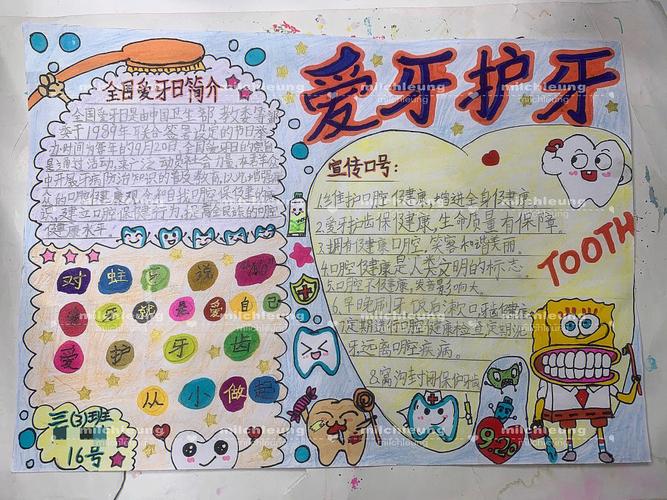 爱牙护牙
全国爱牙日简介
全国爱牙日是由中国卫生部、教委等部
委于1989年联合签署设定的节日举
办时间为每年的9月20日全国爱牙日的宗旨
是通过活动,来广泛动员社会力量,在群众
中开展牙病防治知识的普及教育,以增强
众的口腔健康观念和自我口腔保健的意
识,建立口腔保健行为,提高全民族的口腔
健康水平
对蛀牙说"NO"
牙就是爱自己
爱护牙齿
从小做起
三(3)班
16号
宣传口号:
1.维护口腔健康,增进全身健康
2.爱牙护齿保健康,生命质量有保障
3.拥有健康口腔,笑容和谐美丽。
4.口腔健康是人类文明的标志。
5.口腔不健康,美容影响大。
6.早晚刷牙饭后漱口牙齿健
7.定期进行口腔健康检查
牙远离口腔疾病。
8.窝沟封闭保护牙齿
TOOTH
9.20
milchleung
milchleung
milchleung
milchleung
milchleung
milchleung
milchleung
milchleung
milchleung
milchleung
milchleung
milchleung